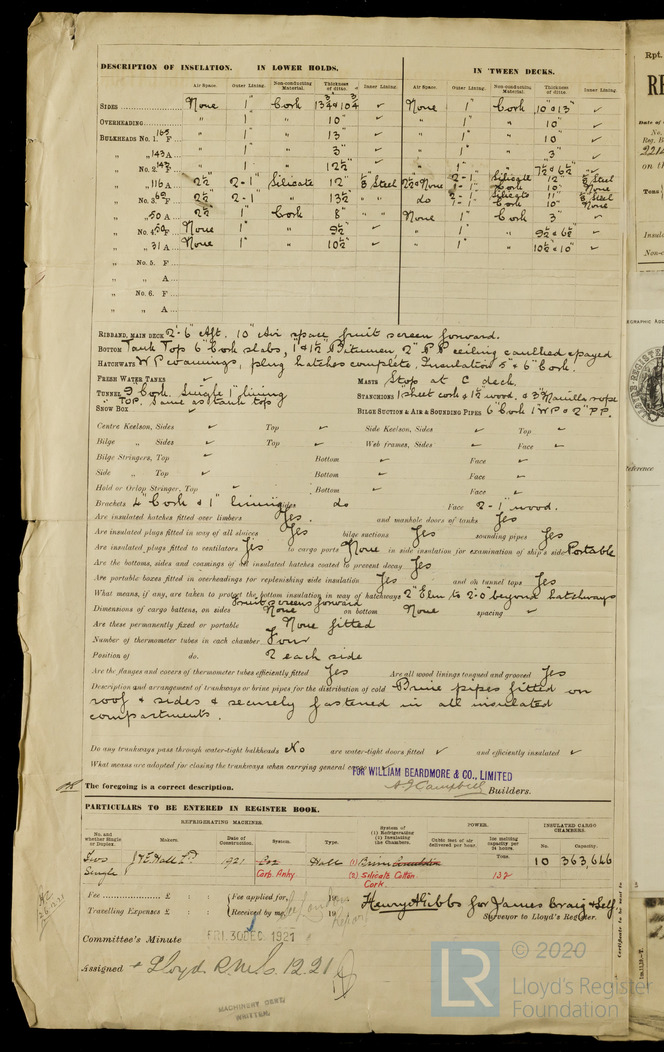 DESCRIPTION OF INSULATION. IN LOWER HOLDS. IN 'TWEEN DECKS.
Air Space. Outer Lining. Non-conducting Material. Thickness of ditto. Inner Lining. Air Space. Outer Lining. Non-conducting Material. Thickness of ditto. Inner Lining.
SIDES None 1" Cork 13¾" & 10¾" ✓ None 1" Cork 10" & 13" ✓
OVERHEADING " 1" " 10" ✓ " 1" " 10" ✓
BULKHEADS No. 1. 165 F " 1" " 13" ✓ " 1" " 10 ✓
" " 143 A " 1" " 3" ✓ " 1" " 3" ✓
" No. 2. 142 F " 1" " 12½" ✓ " 1" " 7½" & 6½" ✓
" " 116 A 2½ 2-1" Silicate 12" Steel 2½ & None 2-1" 1-1" Silicate Cork 12" 10" Steel None
" No. 3. F 2½ 2-1" " 13½" " " do 2-1" Silicate Cork 11" 10" Steel None
" " 50 A 2½ 1" Cork 8" " " None 1" Cork 3" ✓
" No. 4. 50 F None 1" " 9½" ✓ " 1" " 9½ & 6½" ✓
" " 31 A None 1" " 10½" ✓ " 1" " 10½" & 10" ✓
" No. 5. F
" " A
" No. 6. F
" " A
RIBBAND, MAIN DECK 2'-6" Aft. 10" Air space fruit screen forward.
BOTTOM Tank Top 6" Cork slabs, 1" & 1½" Bitumen, 2" P.P. ceiling caulked & payed
HATCHWAYS W P coamings, plug hatches complete, Insulation 5" & 6" Cork.
FRESH WATER TANKS ✓ MASTS Stop at C deck.
TUNNEL 9" Cork, Single 1" lining STANCHIONS 1 sheet cork & 1½ wood, & 3" Manilla rope
" TOP. Same as tank top
SNOW BOX ✓ BILGE SUCTION & AIR & SOUNDING PIPES 6" Cork 1" W P & 2" P.P.
Centre Keelson, Sides ✓ Top ✓ Side Keelson, Sides ✓ Top ✓
Bilge " Sides ✓ Top ✓ Web frames, Sides ✓ Face ✓
Bilge Stringers, Top ✓ Bottom ✓ Face ✓
Side " Top ✓ Bottom ✓ Face ✓
Hold or Orlop Stringer, Top ✓ Bottom ✓ Face ✓
Brackets 4" Cork & 1" lining sides do Face 2-1" wood.
Are insulated hatches fitted over limbers Yes. and manhole doors of tanks Yes
Are insulated plugs fitted in way of all sluices Yes bilge suctions Yes sounding pipes Yes
Are insulated plugs fitted to ventilators Yes to cargo ports None in side insulation for examination of ship's side Portable
Are the bottoms, sides and coamings of all insulated hatches coated to prevent decay Yes
Are portable boxes fitted in overheadings for replenishing side insulation Yes and on tunnel tops Yes
What means, if any, are taken to protect the bottom insulation in way of hatchways 2" Elm to 2'0" beyond hatchways
Fruit screens forward
Dimensions of cargo battens, on sides None on bottom None spacing ✓
Are these permanently fixed or portable None fitted
Number of thermometer tubes in each chamber Four
Position of do. 2 each side
Are the flanges and covers of thermometer tubes efficiently fitted Yes Are all wood linings tongued and grooved Yes
Description and arrangement of trunkways or brine pipes for the distribution of cold Brine pipes fitted on
roof & sides & securely fastened in all insulated
compartments.
Do any trunkways pass through water-tight bulkheads No are water-tight doors fitted ✓ and efficiently insulated ✓
What means are adopted for closing the trunkways when carrying general cargo
FOR WILLIAM BEARDMORE & CO., LIMITED
The foregoing is a correct description. A J Campbell Builders.
PARTICULARS TO BE ENTERED IN REGISTER BOOK.
REFRIGERATING MACHINES. POWER. INSULATED CARGO CHAMBERS.
No. and whether Single or Duplex. Makers. Date of Construction. System. Type. System of (1) Refrigerating (2) Insulating the Chambers. Cubic feet of air delivered per hour. Ice melting capacity per 24 hours. No. Capacity.
Tons.
Two Single J & E Hall Ld 1921 Carb. Anhy. Hall (1) Brine (2) Silicate Cotton Cork. 132 10 363,646
Fee £ : : Fee applied for, 19
Travelling Expenses £ : : Received by me, 19
See London Report
Henry A Gibbs for James Craig & Self
Surveyor to Lloyd's Register.
Committee's Minute FRI. 30 DEC 1921
Assigned + Lloyd R.M.C. 12.21
MACHINERY CERT. WRITTEN.
Certificate to be sent to
Rpt.
Date of
No.
Reg. B
on th
Tons
Insula
Non-c
EGRAPHIC AD
eference
LR
© 2020
Lloyd's Register
Foundation